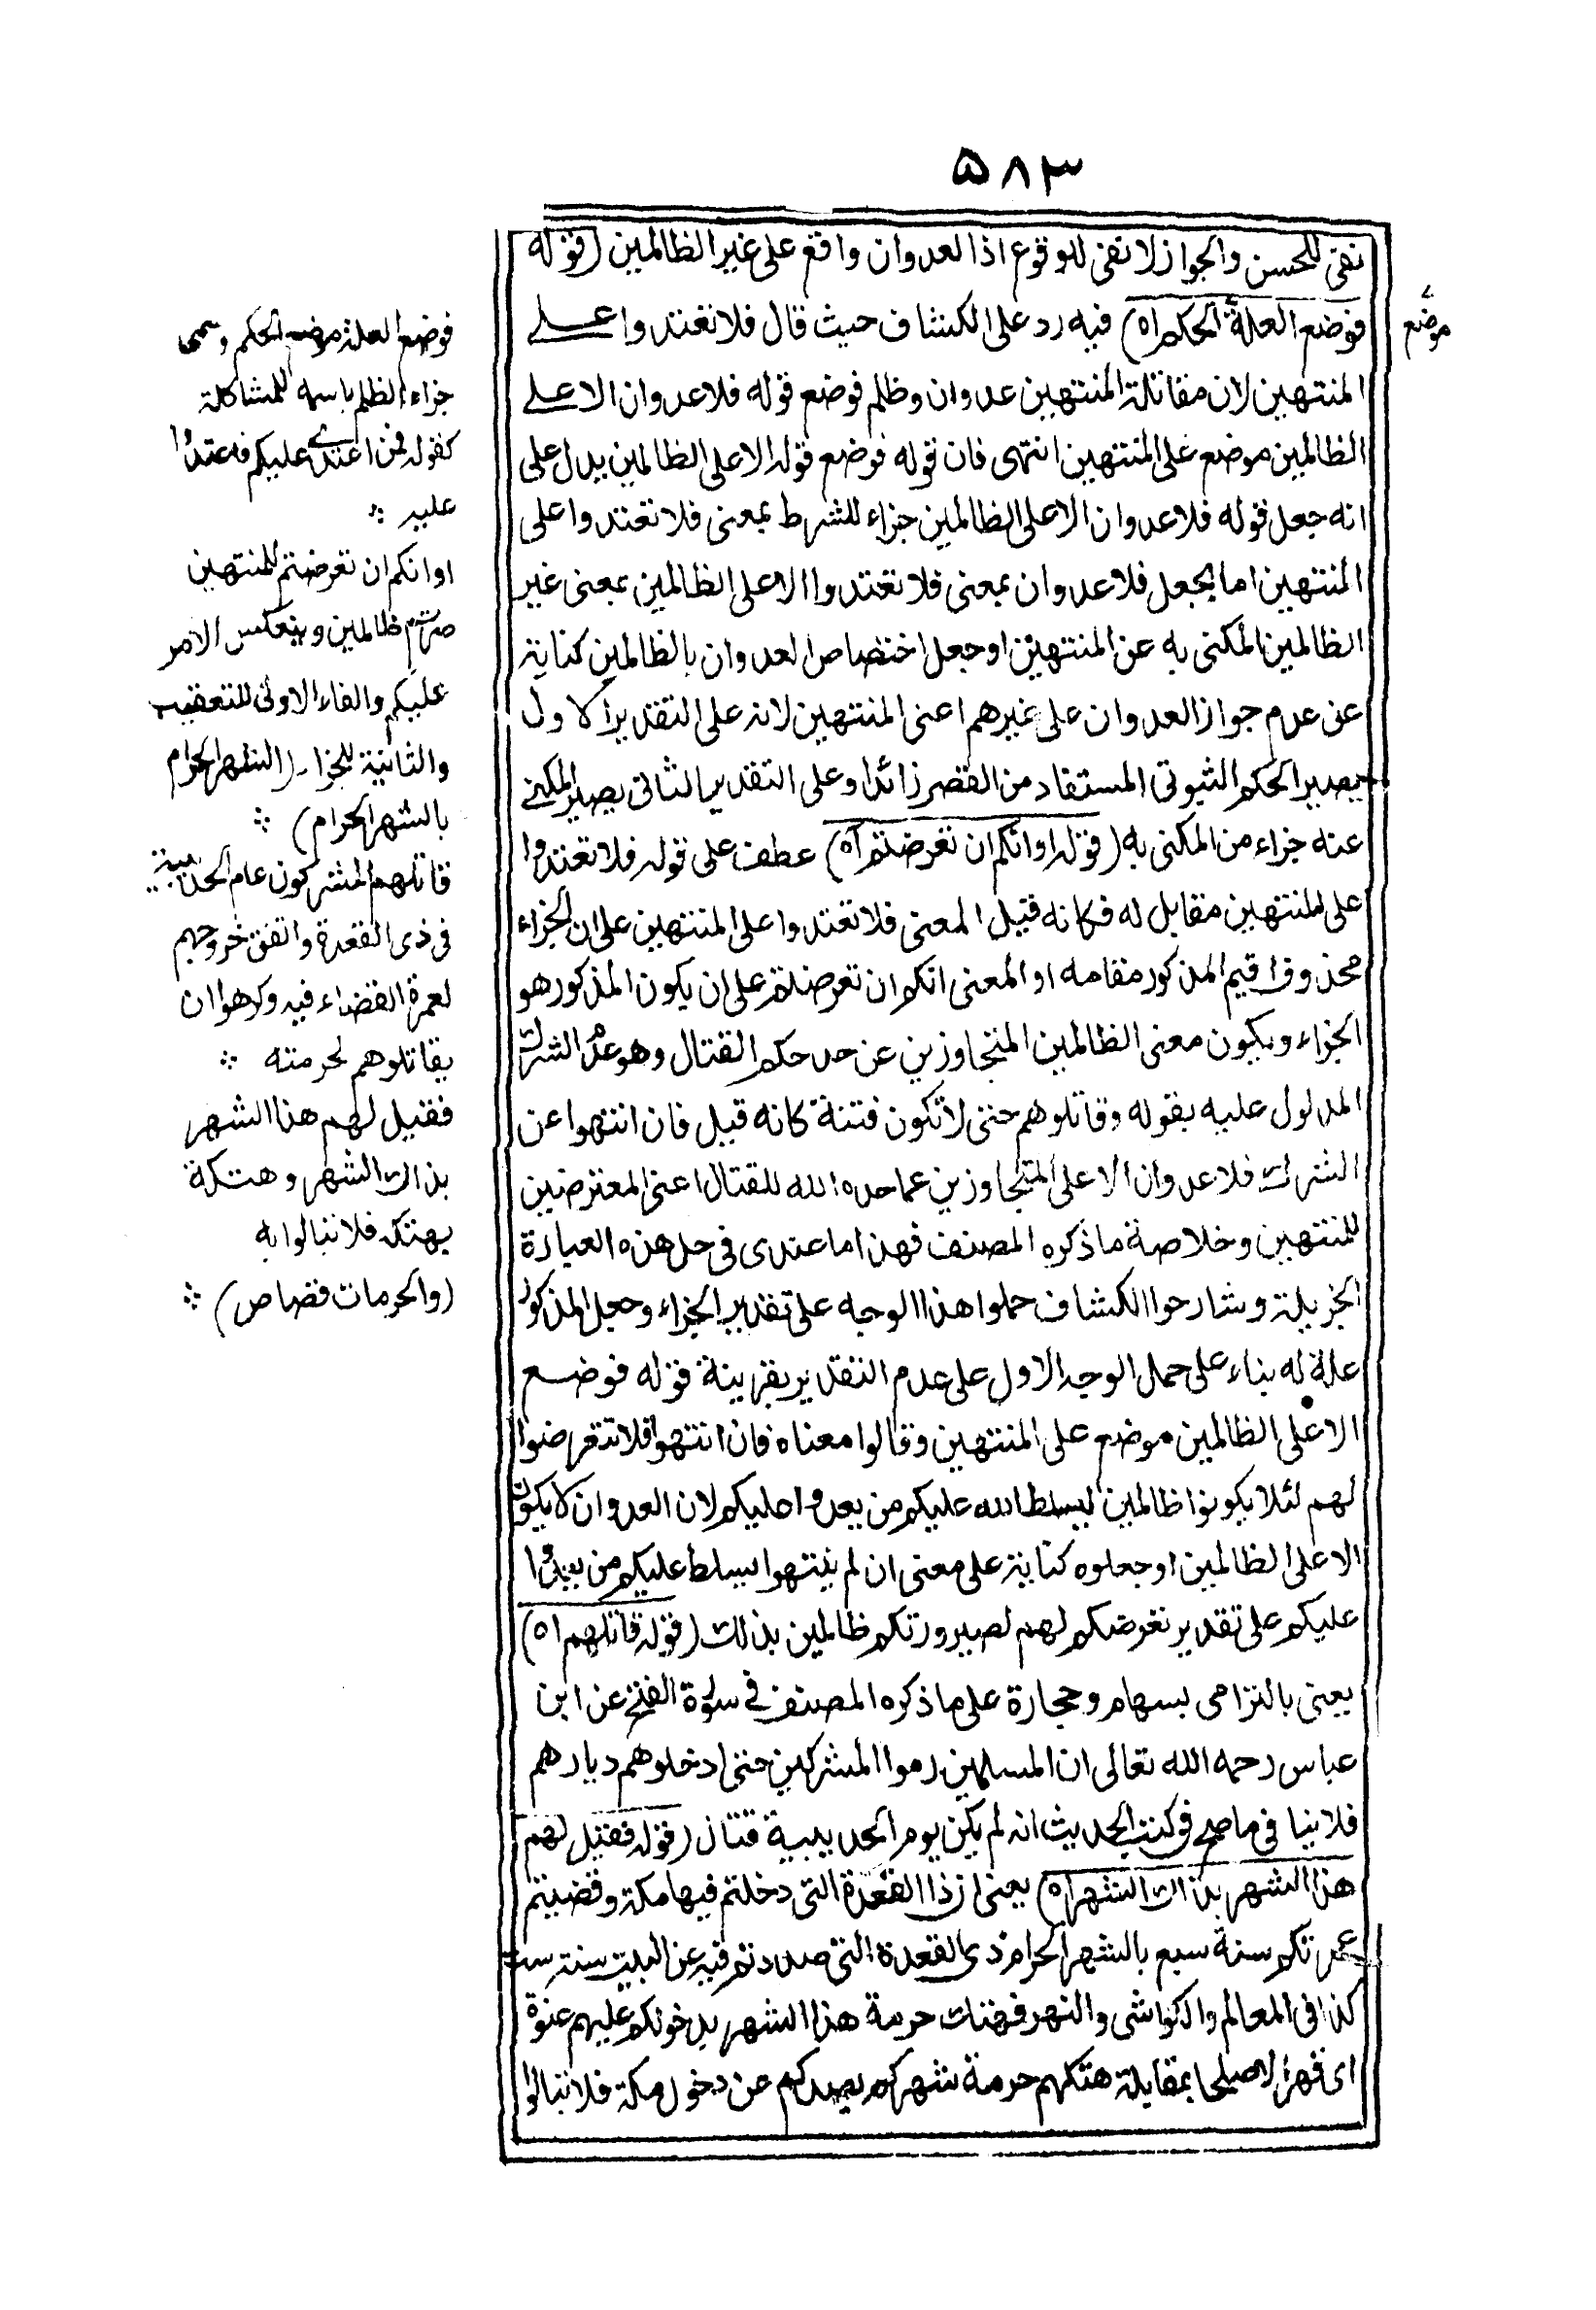 ۵۸۳
نفى للحسن والجواز لا نفى للوقوع اذا لعدوان واقع على غير الظالمين (قوله
فوضع العلة الحكم اه) فيه رد على الكشاف حيث قال فلا تعتدوا على
المنتهين لان مقاتلة المنتهين عدوان وظلم فوضع قوله فلا عدوان الا على
الظالمين موضع على المنتهين انتهى فان قوله فوضع قوله الا على الظالمين يدل على
انه جعل قوله فلا عدوان الا على الظالمين جزاء للشرط بمعنى فلا تعتدوا على
المنتهين اما يجعل فلا عدوان بمعنى فلا تعتدوا الا على الظالمين بمعنى غير
الظالمين المكنى به عن المنتهين او جعل اختصاص العدوان بالظالمين كناية
عن عدم جواز العدوان على غيرهم اعنى المنتهين لانه على التقدير الاول
يصير الحكم الثبوتى المستفاد من القصر زائدا وعلى التقدير الثانى يصير المكنى
عنه جزاء من المكنى به (قوله او انكم ان تعرضتم اه) عطف على قوله فلا تعتدوا
على المنتهين مقابل له فكانه قيل المعنى فلا تعتدوا على المنتهين على ان الجزاء
محذوف اقيم المذكور مقامه او المعنى انكم ان تعرضتم على ان يكون المذكور هو
الجزاء ويكون معنى الظالمين المتجاوزين عن حد حكم القتال وهو عدم الشرك
المدلول عليه بقوله وقاتلوهم حتى لا تكون فتنة كانه قيل فان انتهوا عن
الشرك فلا عدوان الا على المتجاوزين عما حده الله للقتال اعنى المعترضين
للمنتهين وخلاصة ما ذكره المصنف فهذا ما عندى فى حل هذه العبارة
الجزيلة وشارحوا الكشاف حملوا هذا الوجه على تقدير الجزاء وجعل المذكور
علة له بناء على حمل الوجه الاول على عدم التقدير بقرينة قوله فوضع
الا على الظالمين موضع على المنتهين وقالوا معناه فان انتهوا فلا تتعرضوا
لهم لئلا يكونوا ظالمين ليسلط الله عليكم من يعدوا عليكم لان العدوان لا يكون
الا على الظالمين او جعلوه كناية على معنى ان لم ينتهوا يسلط عليكم من يعدوا
عليكم على تقدير تعرضكم لهم لصيرورتكم ظالمين بذلك (قوله قاتلهم اه)
يعنى بالترامى بسهام وحجارة على ما ذكره المصنف فى سورة الفتح عن ابن
عباس رحمه الله تعالى ان المسلمين رموا المشركين حتى ادخلوهم ديارهم
فلا ينافى ما صح فى كتب الحديث انه لم يكن يوم الحديبية قتال (قوله فقيل لهم
هذا الشهر بذاك الشهر اه) يعنى ان ذا القعدة التى دخلتم فيها مكة وقضيتم
عمرتكم سنة سبع بالشهر الحرام ذى القعدة التى صددتم فيه عن البيت سنة ست
كذا فى المعالم والكواشى والنهر فهتك حرمة هذا الشهر بدخولكم عليهم عنوة
اى قهرا لا صلحا بمقابلة هتكهم حرمة شهركم بصدكم عن دخول مكة فلا تبالوا
موضع
فوضع العلة موضع الحكم وسمى
جزاء الظلم باسمه للمشاكلة
كقوله فمن اعتدى عليكم فاعتدوا
عليه
او انكم ان تعرضتم للمنتهين
صرتم ظالمين وينعكس الامر
عليكم والفاء الاولى للتعقيب
والثانية للجزاء (الشهر الحرام
بالشهر الحرام)
قاتلهم المشركون عام الحديبية
فى ذى القعدة واتفق خروجهم
لعمرة القضاء فيه وكرهوا ان
يقاتلوهم لحرمته
فقيل لهم هذا الشهر
بذاك الشهر وهتكه
بهتكه فلا تبالوا به
(والحرمات قصاص)